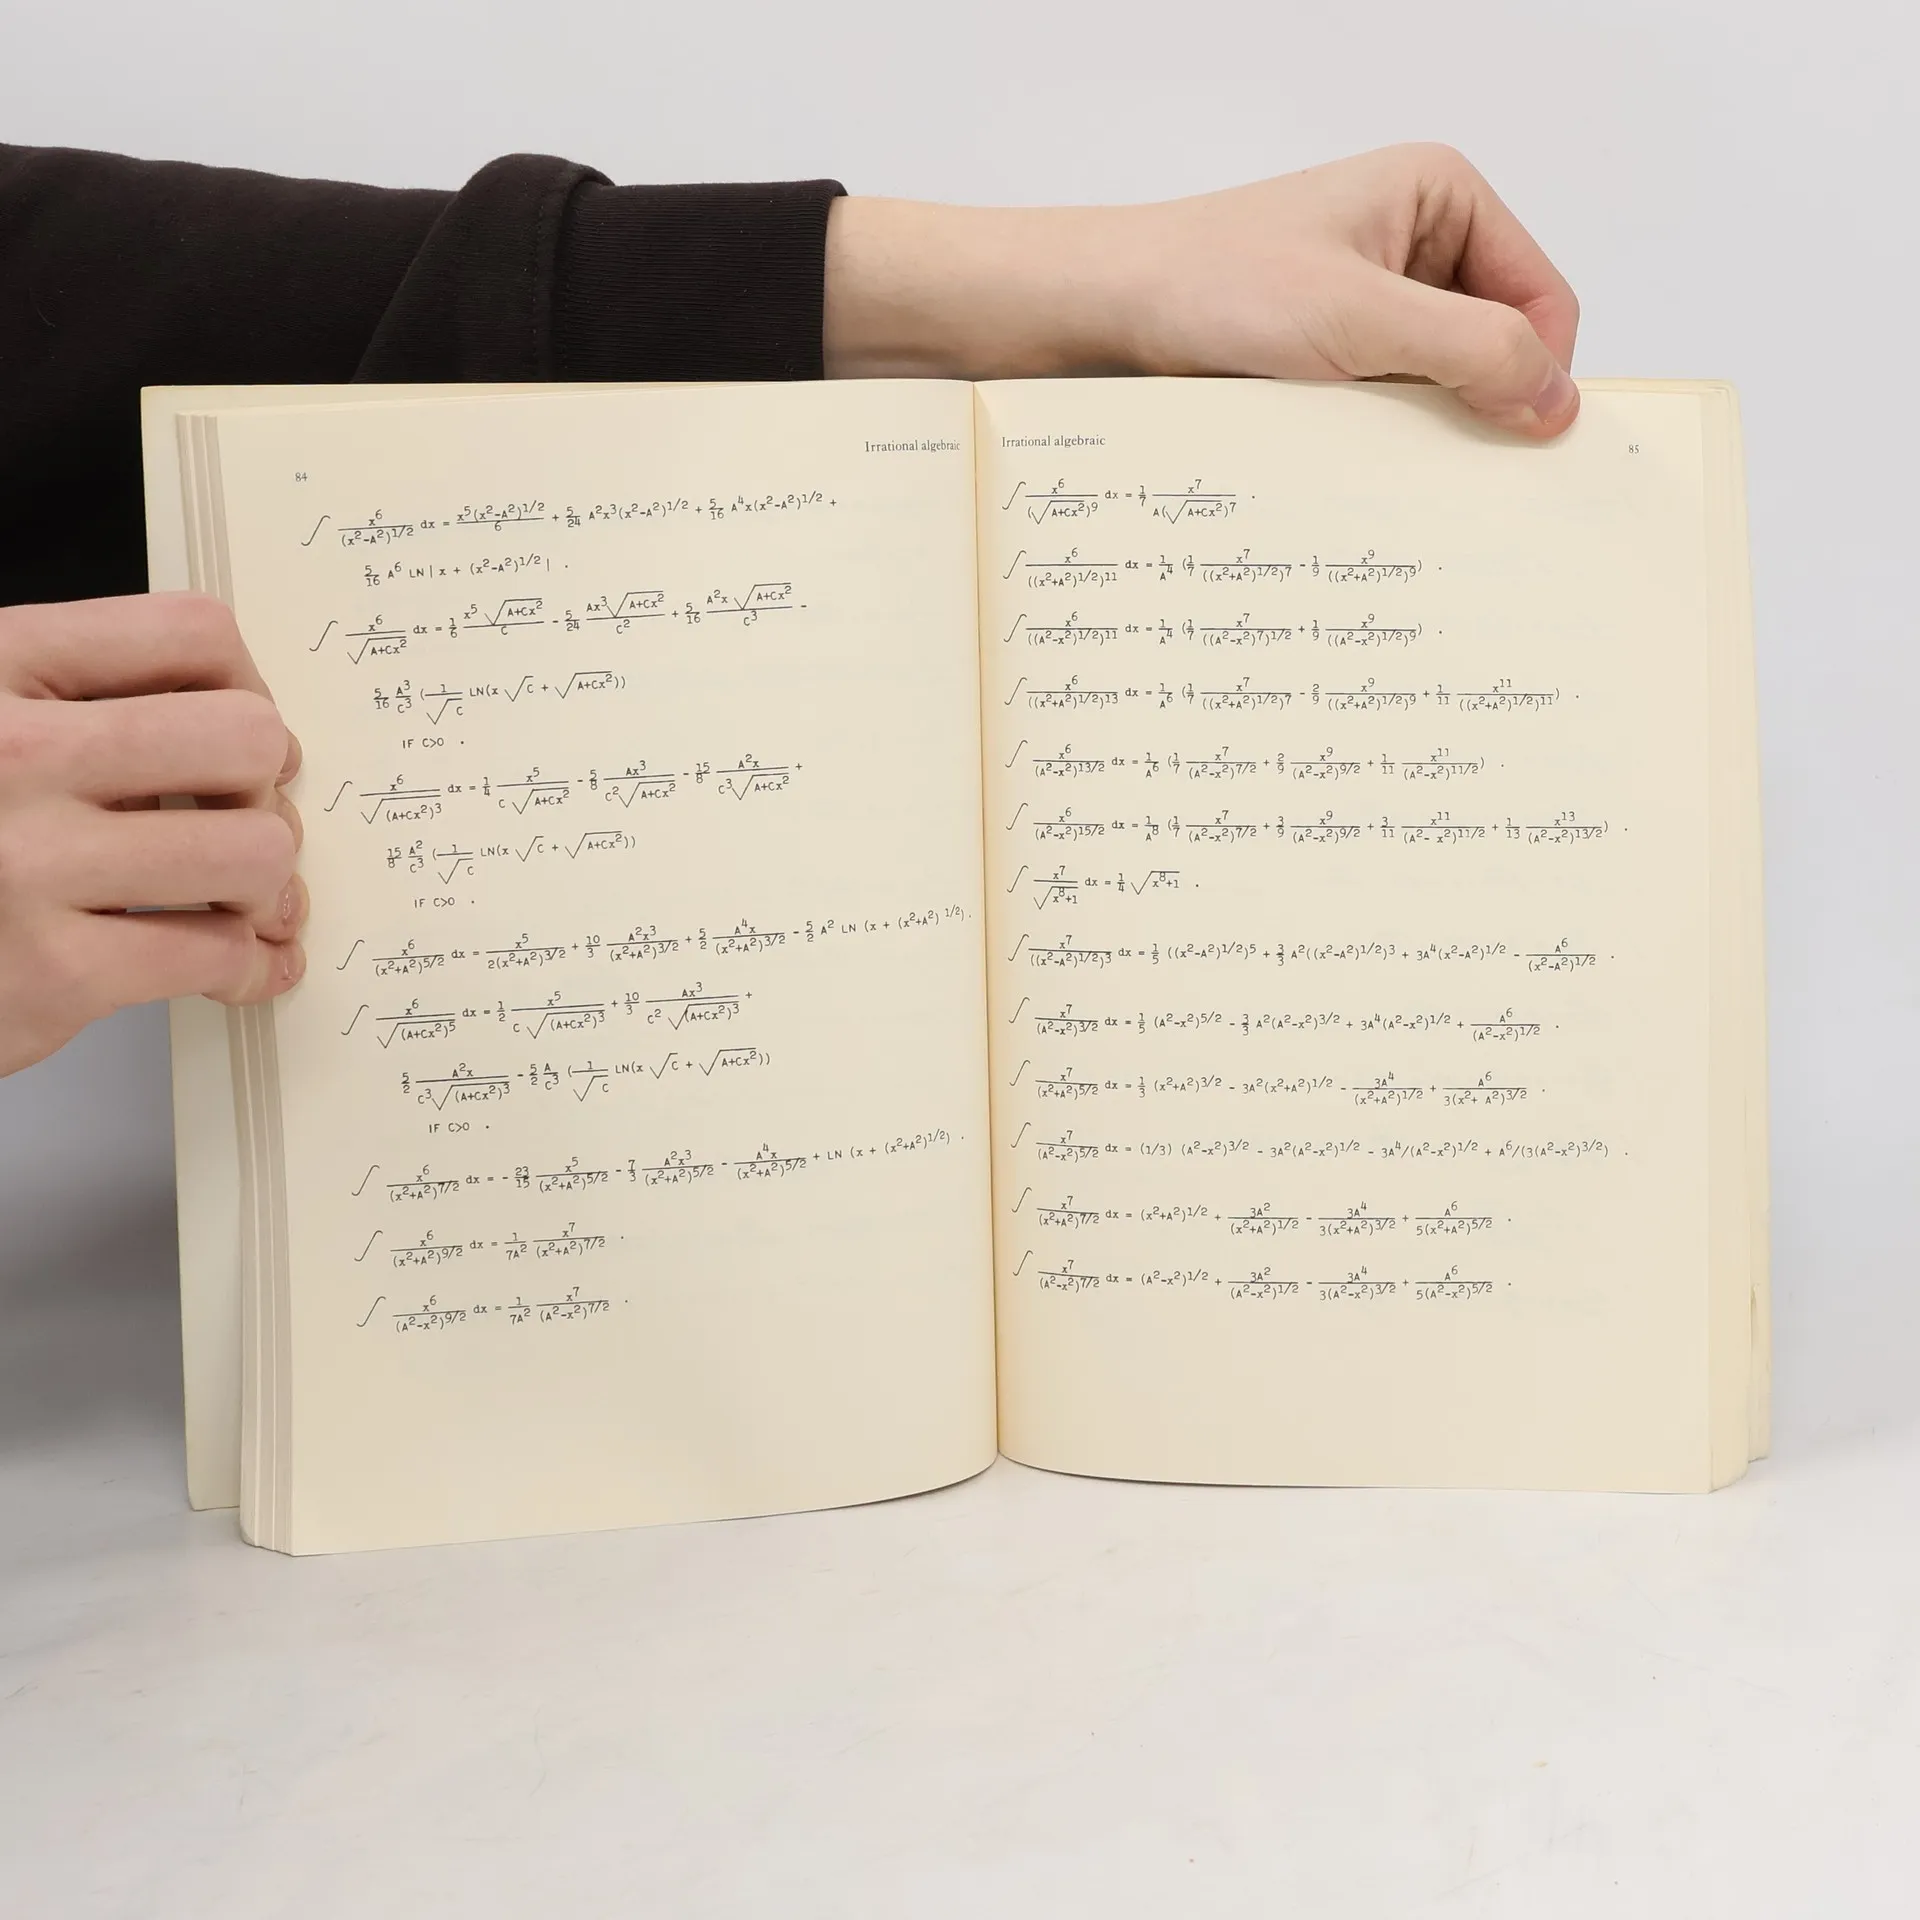 84
Irrational algebraic
∫ x⁶/(x²−A²)^1/2 dx = x⁵(x²−A²)^1/2/6 + 5/24 A²x³(x²−A²)^1/2 + 5/16 A⁴x(x²−A²)^1/2 +
5/16 A⁶ LN|x + (x²−A²)^1/2| .
∫ x⁶/√(A+Cx²) dx = 1/6 x⁵√(A+Cx²)/C − 5/24 Ax³√(A+Cx²)/C² + 5/16 A²x√(A+Cx²)/C³ −
5/16 A³/C³ (1/√C LN(x√C + √(A+Cx²)))
IF C>0 .
∫ x⁶/√((A+Cx²)³) dx = 1/4 x⁵/(C√(A+Cx²)) − 5/8 Ax³/(C²√(A+Cx²)) − 15/8 A²x/(C³√(A+Cx²)) +
15/8 A²/C³ (1/√C LN(x√C + √(A+Cx²)))
IF C>0 .
∫ x⁶/(x²+A²)^5/2 dx = x⁵/(2(x²+A²)^3/2) + 10/3 A²x³/(x²+A²)^3/2 + 5/2 A⁴x/(x²+A²)^3/2 − 5/2 A² LN (x + (x²+A²)^1/2) .
∫ x⁶/√((A+Cx²)⁵) dx = 1/2 x⁵/(C√((A+Cx²)³)) + 10/3 Ax³/(C²√((A+Cx²)³)) +
5/2 A²x/(C³√((A+Cx²)³)) − 5/2 A/C³ (1/√C LN(x√C + √(A+Cx²)))
IF C>0 .
∫ x⁶/(x²+A²)^7/2 dx = − 23/15 x⁵/(x²+A²)^5/2 − 7/3 A²x³/(x²+A²)^5/2 − A⁴x/(x²+A²)^5/2 + LN (x + (x²+A²)^1/2) .
∫ x⁶/(x²+A²)^9/2 dx = 1/7A² x⁷/(x²+A²)^7/2 .
∫ x⁶/(A²−x²)^9/2 dx = 1/7A² x⁷/(A²−x²)^7/2 .
Irrational algebraic
85
∫ x⁶/(√(A+Cx²))⁹ dx = 1/7 x⁷/(A(√(A+Cx²))⁷) .
∫ x⁶/((x²+A²)^1/2)^11 dx = 1/A⁴ (1/7 x⁷/((x²+A²)^1/2)⁷ − 1/9 x⁹/((x²+A²)^1/2)⁹) .
∫ x⁶/((A²−x²)^1/2)^11 dx = 1/A⁴ (1/7 x⁷/((A²−x²)⁷)^1/2 + 1/9 x⁹/((A²−x²)^1/2)⁹) .
∫ x⁶/((x²+A²)^1/2)^13 dx = 1/A⁶ (1/7 x⁷/((x²+A²)^1/2)⁷ − 2/9 x⁹/((x²+A²)^1/2)⁹ + 1/11 x¹¹/((x²+A²)^1/2)^11) .
∫ x⁶/(A²−x²)^13/2 dx = 1/A⁶ (1/7 x⁷/(A²−x²)^7/2 + 2/9 x⁹/(A²−x²)^9/2 + 1/11 x¹¹/(A²−x²)^11/2) .
∫ x⁶/(A²−x²)^15/2 dx = 1/A⁸ (1/7 x⁷/(A²−x²)^7/2 + 3/9 x⁹/(A²−x²)^9/2 + 3/11 x¹¹/(A²− x²)^11/2 + 1/13 x¹³/(A²−x²)^13/2) .
∫ x⁷/√(x⁸+1) dx = 1/4 √(x⁸+1) .
∫ x⁷/((x²−A²)^1/2)³ dx = 1/5 ((x²−A²)^1/2)⁵ + 3/3 A²((x²−A²)^1/2)³ + 3A⁴(x²−A²)^1/2 − A⁶/(x²−A²)^1/2 .
∫ x⁷/(A²−x²)^3/2 dx = 1/5 (A²−x²)^5/2 − 3/3 A²(A²−x²)^3/2 + 3A⁴(A²−x²)^1/2 + A⁶/(A²−x²)^1/2 .
∫ x⁷/(x²+A²)^5/2 dx = 1/3 (x²+A²)^3/2 − 3A²(x²+A²)^1/2 − 3A⁴/(x²+A²)^1/2 + A⁶/(3(x²+ A²)^3/2) .
∫ x⁷/(A²−x²)^5/2 dx = (1/3) (A²−x²)^3/2 − 3A²(A²−x²)^1/2 − 3A⁴/(A²−x²)^1/2 + A⁶/(3(A²−x²)^3/2) .
∫ x⁷/(x²+A²)^7/2 dx = (x²+A²)^1/2 + 3A²/(x²+A²)^1/2 − 3A⁴/(3(x²+A²)^3/2) + A⁶/(5(x²+A²)^5/2) .
∫ x⁷/(A²−x²)^7/2 dx = (A²−x²)^1/2 + 3A²/(A²−x²)^1/2 − 3A⁴/(3(A²−x²)^3/2) + A⁶/(5(A²−x²)^5/2) .